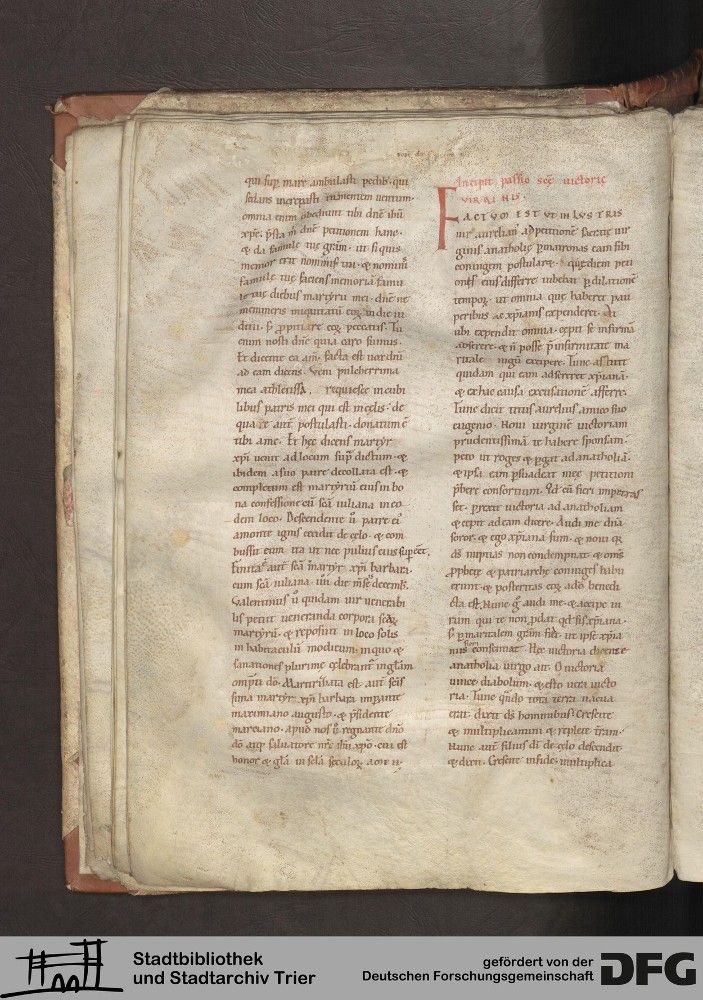 qui sup mare ambulasti pedib; qui
sedans increpasti tumentem uentum.
omnia enim obediunt tibi dne ihu
xpe. psta m dne petitionem hanc.
& da famule tue gram. ut si quis
memor erit nominis tui. & nominis
famule tue faciens memoriam famu
le tue diebus martyrii mei. dne ne
memineris iniquitatu eor in die iu
dicii. s; propitiare eor peccatis. Tu
enim nosti dne quia caro sumus.
Et dicente ea am. facta est uox dni
ad eam dicens. Veni pulcherrima
mea athletissa. requiesce in cubi
libus patris mei qui est in celis. de
qua re aut postulasti. donatum e
tibi a me. Et hec dicens martyr
xpi uenit ad locum sup dictum. &
ibidem a suo patre decollata est. &
completum est martyriu eius in bo
na confessione cu sca iuliana in eo
dem loco. Descendente u patre ei
a monte ignis cecidit de celo. & com
bussit eum ita ut nec puluis eius supeet.
Finita e aut sca martyr xpi barbara.
cum sca iuliana. iiii die mse decemb.
Valentinus u quidam uir uenerabi
lis petiit ueneranda corpora scar
martyru. & reposuit in loco solis
in habitaculu modicum. in quo &
sanationes plurime celebrant in glam
ompti di. Martirizata est aut scis
sima martyr xpi barbara impante
maximiano augusto. & pside
marciano. apud nos u regnante dno
do atq; saluatore nro ihu xpo. cui est
honor & gla in scla seculor amen.
Incipit passio sce uictorie
uirginis.
FACTUM EST UT INLUSTRIS
uir aurelian ad petitione sacrate uir
ginis anatholie pmatronas eam sibi
coniugem postulare. que diem peti
onis eius differre iubebat p dilatione
tempor. ut omnia que haberet pau
peribus ac xpianis expenderet. At
ubi expendit omnia. cepit se infirma
adserere. & n posse p infirmitate ma
ritale iugu excipere. Tunc astitit
quidam qui eam adsereret xpiana.
& ex hac causa excusatione afferre.
Tunc dicit titus aurelius amico suo
eugenio. Noui uirgine uictoriam
prudentissima te habere sponsam.
peto ut roges & pgat ad anatholia.
& ipsa eam psuadeat mee petitioni
pbere consortium. Qd cu fieri impetras
set. prexit uictoria ad anatholiam
& cepit ad eam dicere. Audi me dna
soror. & ego xpiana sum. & noui q
ds nuptias non condempnat. & oms
pphete & patriarche coniuges habu
erunt. & posteritas eor a do benedi
cta est. Nunc g audi me. & accipe ui
rum qui te non pdat qd sis xpiana.
s; p maritalem gram fiet. ut ipse xpia
nus consumat. Hec uictoria dicente
anatholia uirgo ait. O uictoria
uince diabolum. & esto uera uicto
ria. Tunc quando tota terra uacua
erat. dixit ds hominibus. Crescite
& multiplicamini & replete tram.
Nunc aut filius di de celo descendit.
& dixit. Crescite in fide. multiplica
Stadtbibliothek
und Stadtarchiv Trier
gefördert von der
Deutschen Forschungsgemeinschaft
DFG